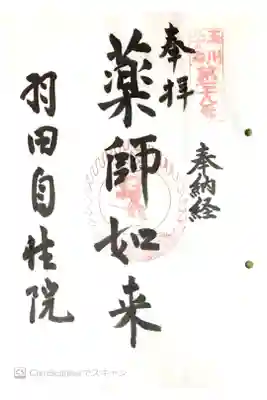 奉拝
奉納経
薬師如来
羽田自性院
CamScannerでスキャン